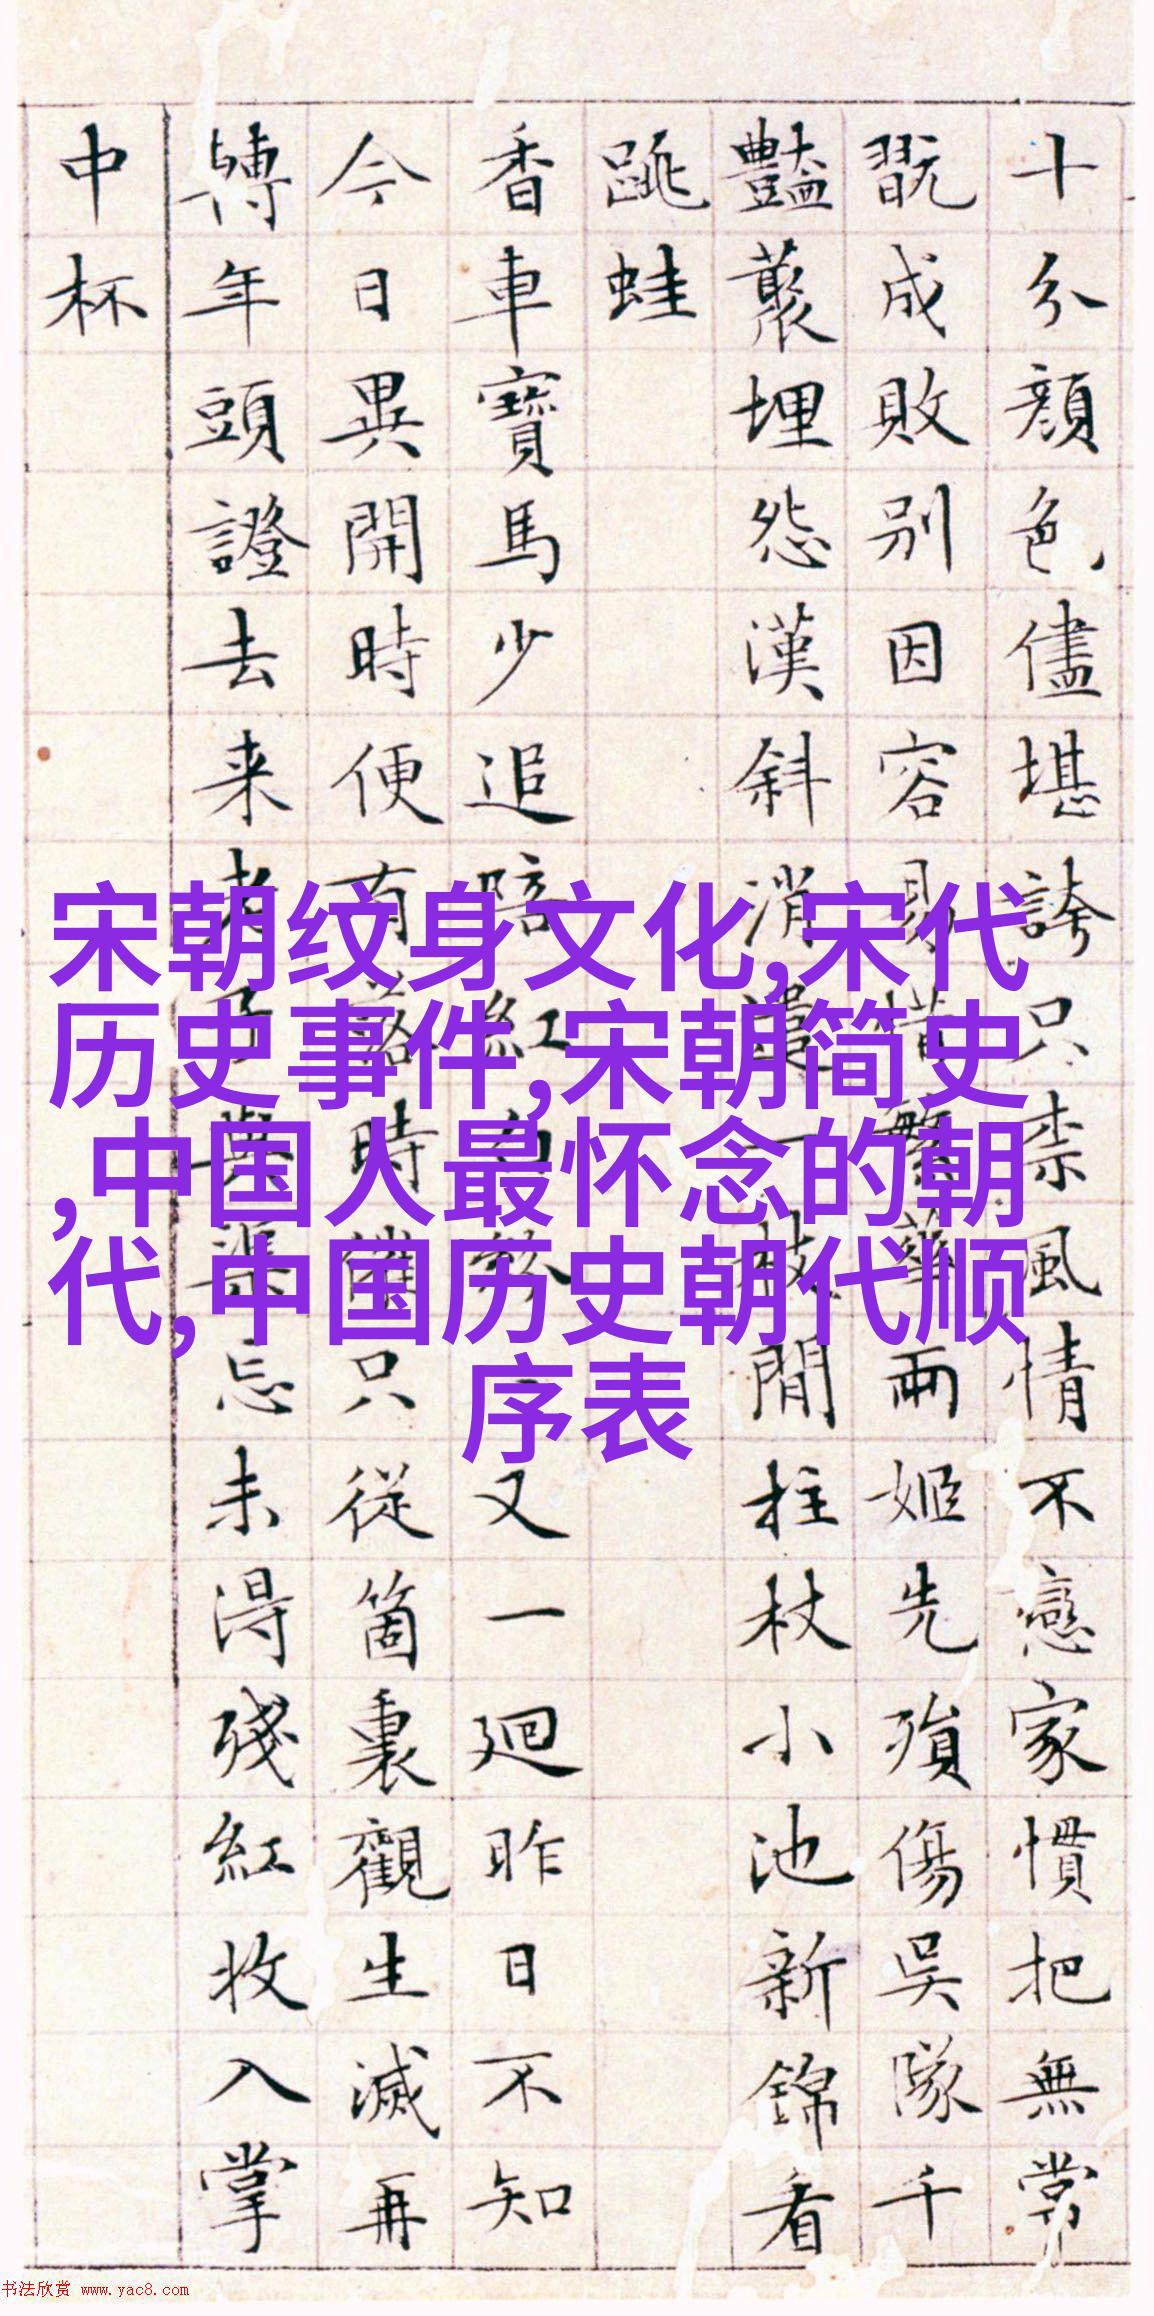 十分顏色儘堪誇只柰風情不戀家慣把無常
翫成敗別因容易惜繁華兩姬先殞傷吳隊千
豔藂埋怨漢斜消遣一枝閒柱杖小池新錦看
跳蛙
香車寶馬少追陪紅白紛又一迴昨日不知
今日異開時便有落時催只從箇裏觀生滅再
轉年頭證去来老子與渠忘未得殘紅收入掌
中杯
宋朝纹身文化,宋代
历史事件,宋朝简史
,中国人最怀念的朝
代,中国历史朝代顺
序表
书法欣赏 www.yac8.com